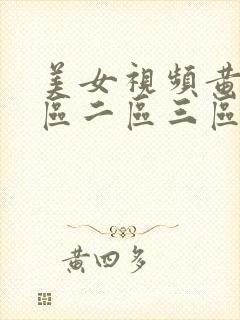 美女視頻黃
區二區三區
黃四多